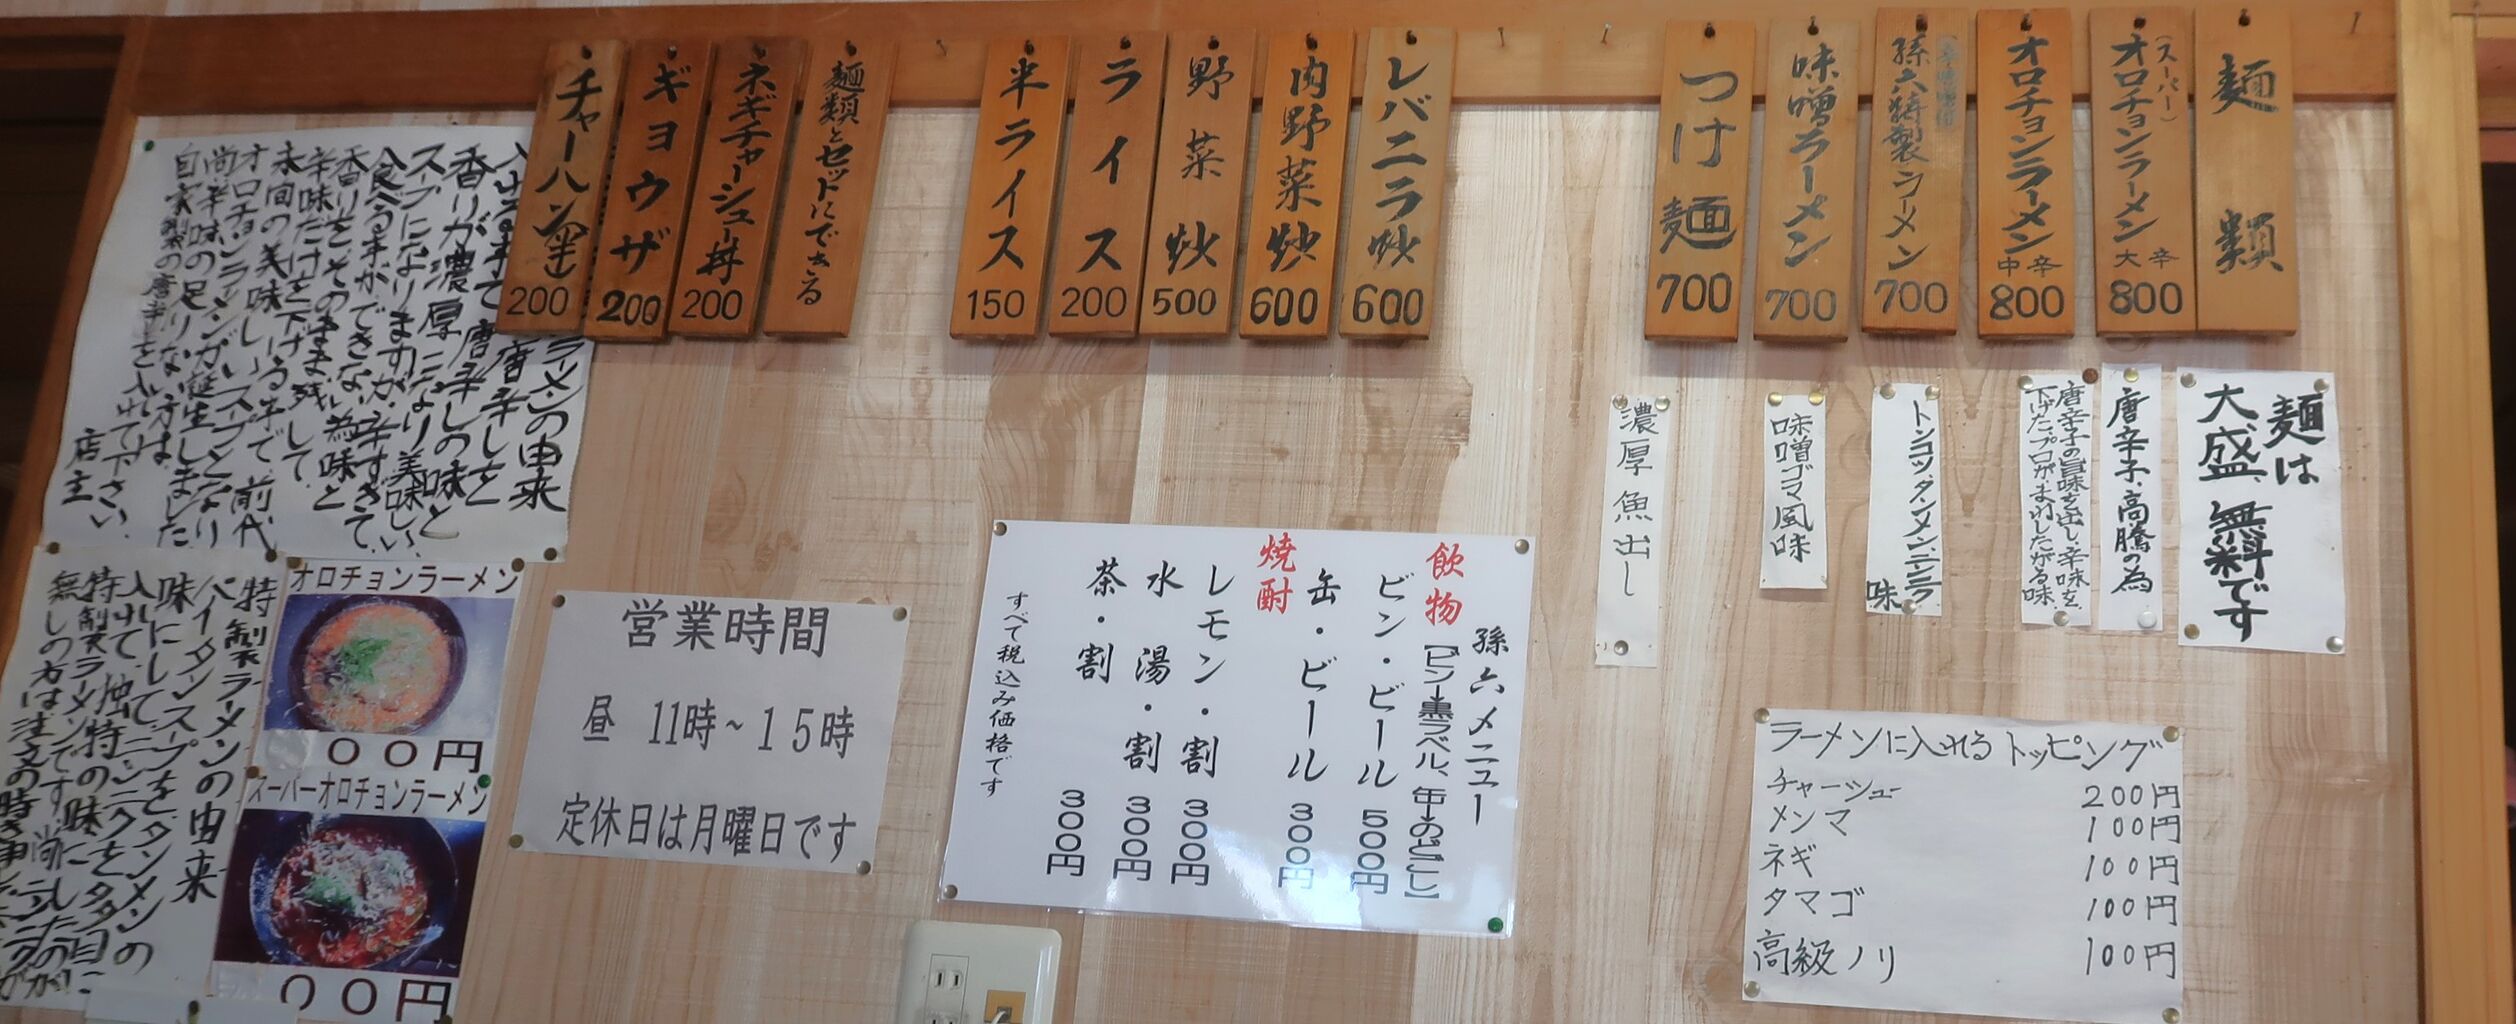 麺類
(スーパー)
オロチョンラーメン
大辛
800
オロチョンラーメン
中辛
800
孫六特製ラーメン
700
味噌ラーメン
700
つけ麺
700
レバニラ炒
600
肉野菜炒
600
野菜炒
500
ライス
200
半ライス
150
麺類とセットにできる
ネギチャーシュー丼
200
ギョウザ
200
チャーハン
200
麺は
大盛、無料です
唐辛子、高騰の為
唐辛子の旨味を出し、辛味を、
下げた、プロが、まねしたがる味、
トンコツ、タンメン、ニンニク
味
味噌ゴマ風味
濃厚魚出し
孫六メニュー
飲物
ビン・ビール 500円
缶・ビール 300円
焼酎
レモン・割 300円
水 湯・割 300円
茶・割 300円
すべて税込み価格です
ラーメンに入れるトッピング
チャーシュー 200円
メンマ 100円
ネギ 100円
タマゴ 100円
高級ノリ 100円
営業時間
昼 11時~15時
定休日は月曜日です
ラーメンの由来
唐辛しを
入
香りが濃厚になり美味しい、
スープになりますが、辛すぎて、
食べる事ができない為
香りをそのまま残して
辛味だけを下げる事で、前代
未間の美味しいスープとなり
オロチョンラーメンが誕生しました
尚辛味の足りない方は、
自家製の唐辛しを入れて下さい、
店主、
オロチョンラーメン
00円
スーパーオロチョンラーメン
00円
特製ラーメンの由来
パイタンスープを、タンメンの
味にして、ニンニクを
入れて、独特の味にしたのが
特製ラーメンです、尚、
無しの方は注文の時